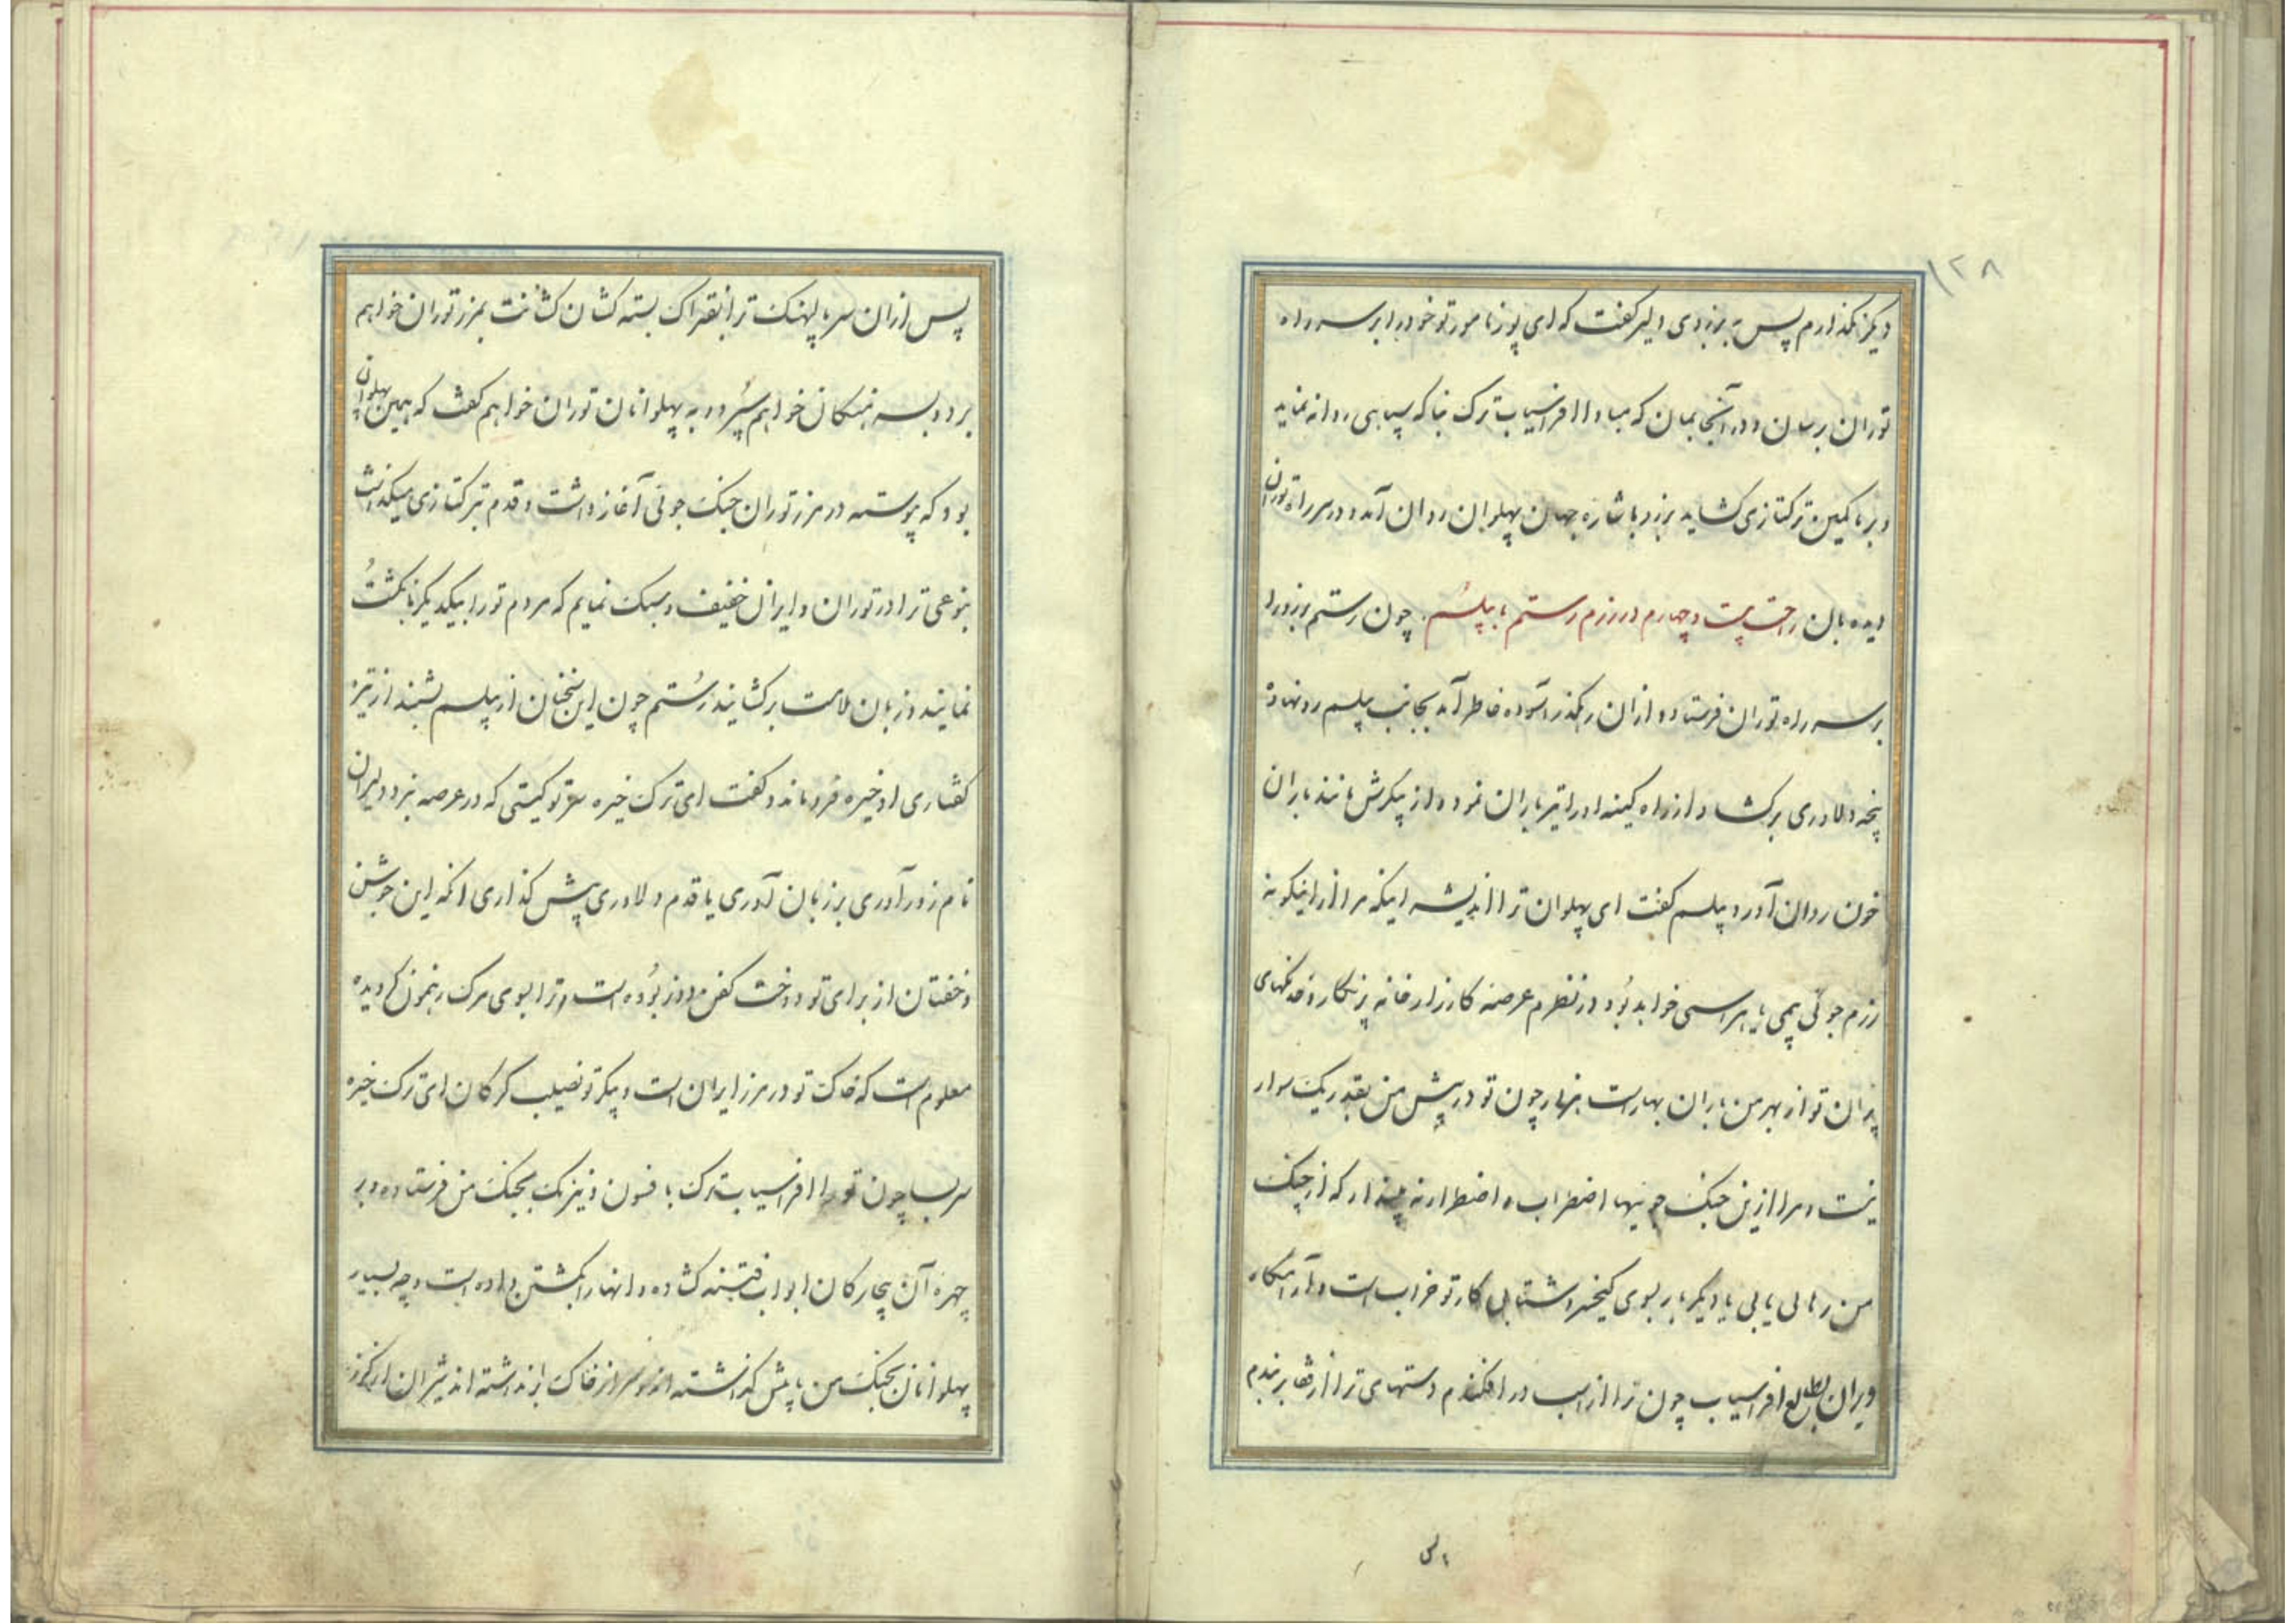 ۱۲۸
دیگر نگذارم پس به برزوی دلیر گفت که ای پور نامور تو خود را بر سر راه
توران برسان و در آنجا بمان که مبادا افراسیاب ترک بناکه سپاهی روانه نماید
و بر ما کمین ترکتازی کشاید برزو باشاره جهان پهلوان روان آمد و در سر راه توران
دیده بان راحت بیست و چهارم در رزم رستم با پیلسم چون رستم برزو را
بر سر راه توران فرستاد و ازان رهگذر آسوده خاطر آمد بجانب پیلسم رو نهاد و
پنجه دلاوری برکشاد و از راه کینه او را تیرباران نمود و از پیکرش مانند باران
خون روان آورد پیلسم گفت ای پهلوان ترا اندیشه اینکه مرا از اینگونه
رزم جوئی بیمی یا هراسی خواهد بود در نظرم عرصه کارزار خانه پرنگار و خدنگهای
پران تو از بهر من باران بهارست هزار چون تو در پیش من بقدر یک سوار
نیست و مرا ازین جنگ جوییها اضطراب و اضطرار نه مپندار که از چنگ
من رهائی یابی یا دیگر بار بسوی کیخسرو شتابی کار تو خراب است و
ویران بطالع افراسیاب چون ترا از اسب در افکندم دستهای ترا از قفا بر بندم
پس
پس ازان سر پالهنگ ترا بفتراک بسته کشان کشانت بمرز توران خواهم
برد و بسرهنگان خواهم سپرد و به پهلوانان توران خواهم گفت که همین پهلوان
بود که پیوسته در مرز توران جنگ جوئی آغاز داشت و قدم بترکتازی میگذاشت
بنوعی ترا در توران و ایران خفیف و سبک نمایم که مردم تو را بیکدیگر بانگشت
نمایند و زبان ملامت برکشایند رستم چون این سخنان از پیلسم شنید از تیز
گفتاری او خیره فرو ماند و گفت ای ترک خیره سر تو کیستی که در عرصه نبرد دلیران
نام زورآوری بر زبان آوری یا قدم دلاوری پیش گذاری آنکه این جوشن
و خفتان از برای تو دوخت کفن دوز بوده است و ترا بسوی مرگ رهنمون گردیده
معلوم است که خاک تو در مرز ایران است و پیکر تو نصیب کرکان ای ترک خیره
سر بسا چون تو را افراسیاب ترک با فسون و نیرنگ بجنگ من فرستاده و بر
چهره آن بیچارگان ابواب فتنه کشاده و آنها را بکشتن داده است و چه بسیار
پهلوانان بجنگ من پا پیش گذاشته اند و سر از خاک بر نداشته اند شیران از گرز